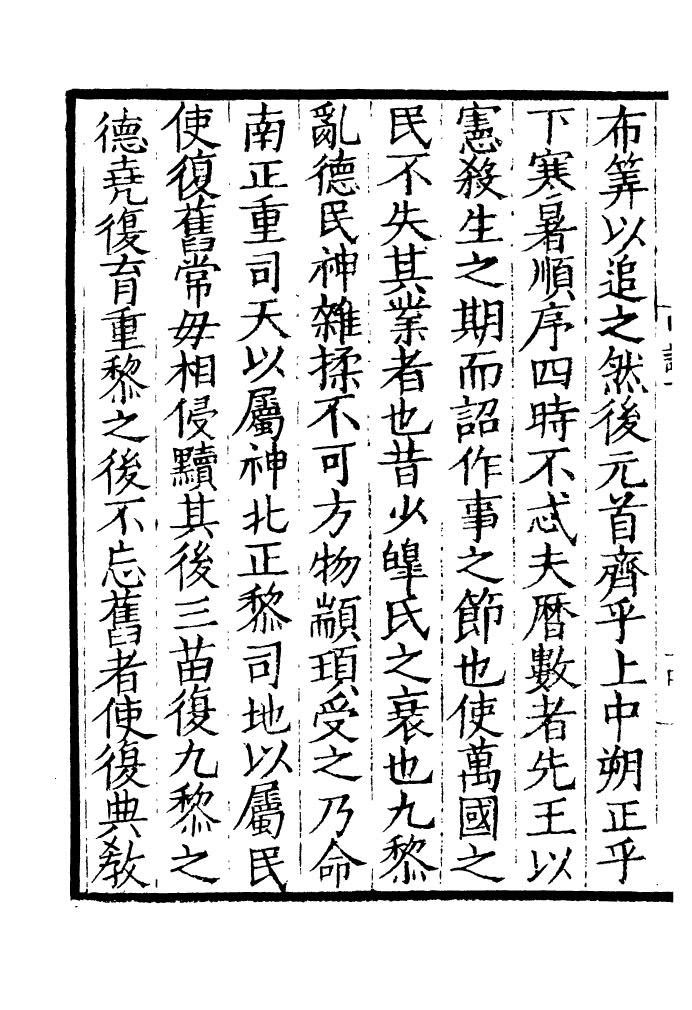 布筭以追之然後元首齊乎上中朔正乎
下寒暑順序四時不忒夫曆數者先王以
憲殺生之期而詔作事之節也使萬國之
民不失其業者也昔少皥氏之衰也九黎
亂德民神雜揉不可方物顓頊受之乃命
南正重司天以屬神北正黎司地以屬民
使復舊常毋相侵黷其後三苗復九黎之
德堯復育重黎之後不忘舊者使復典敎